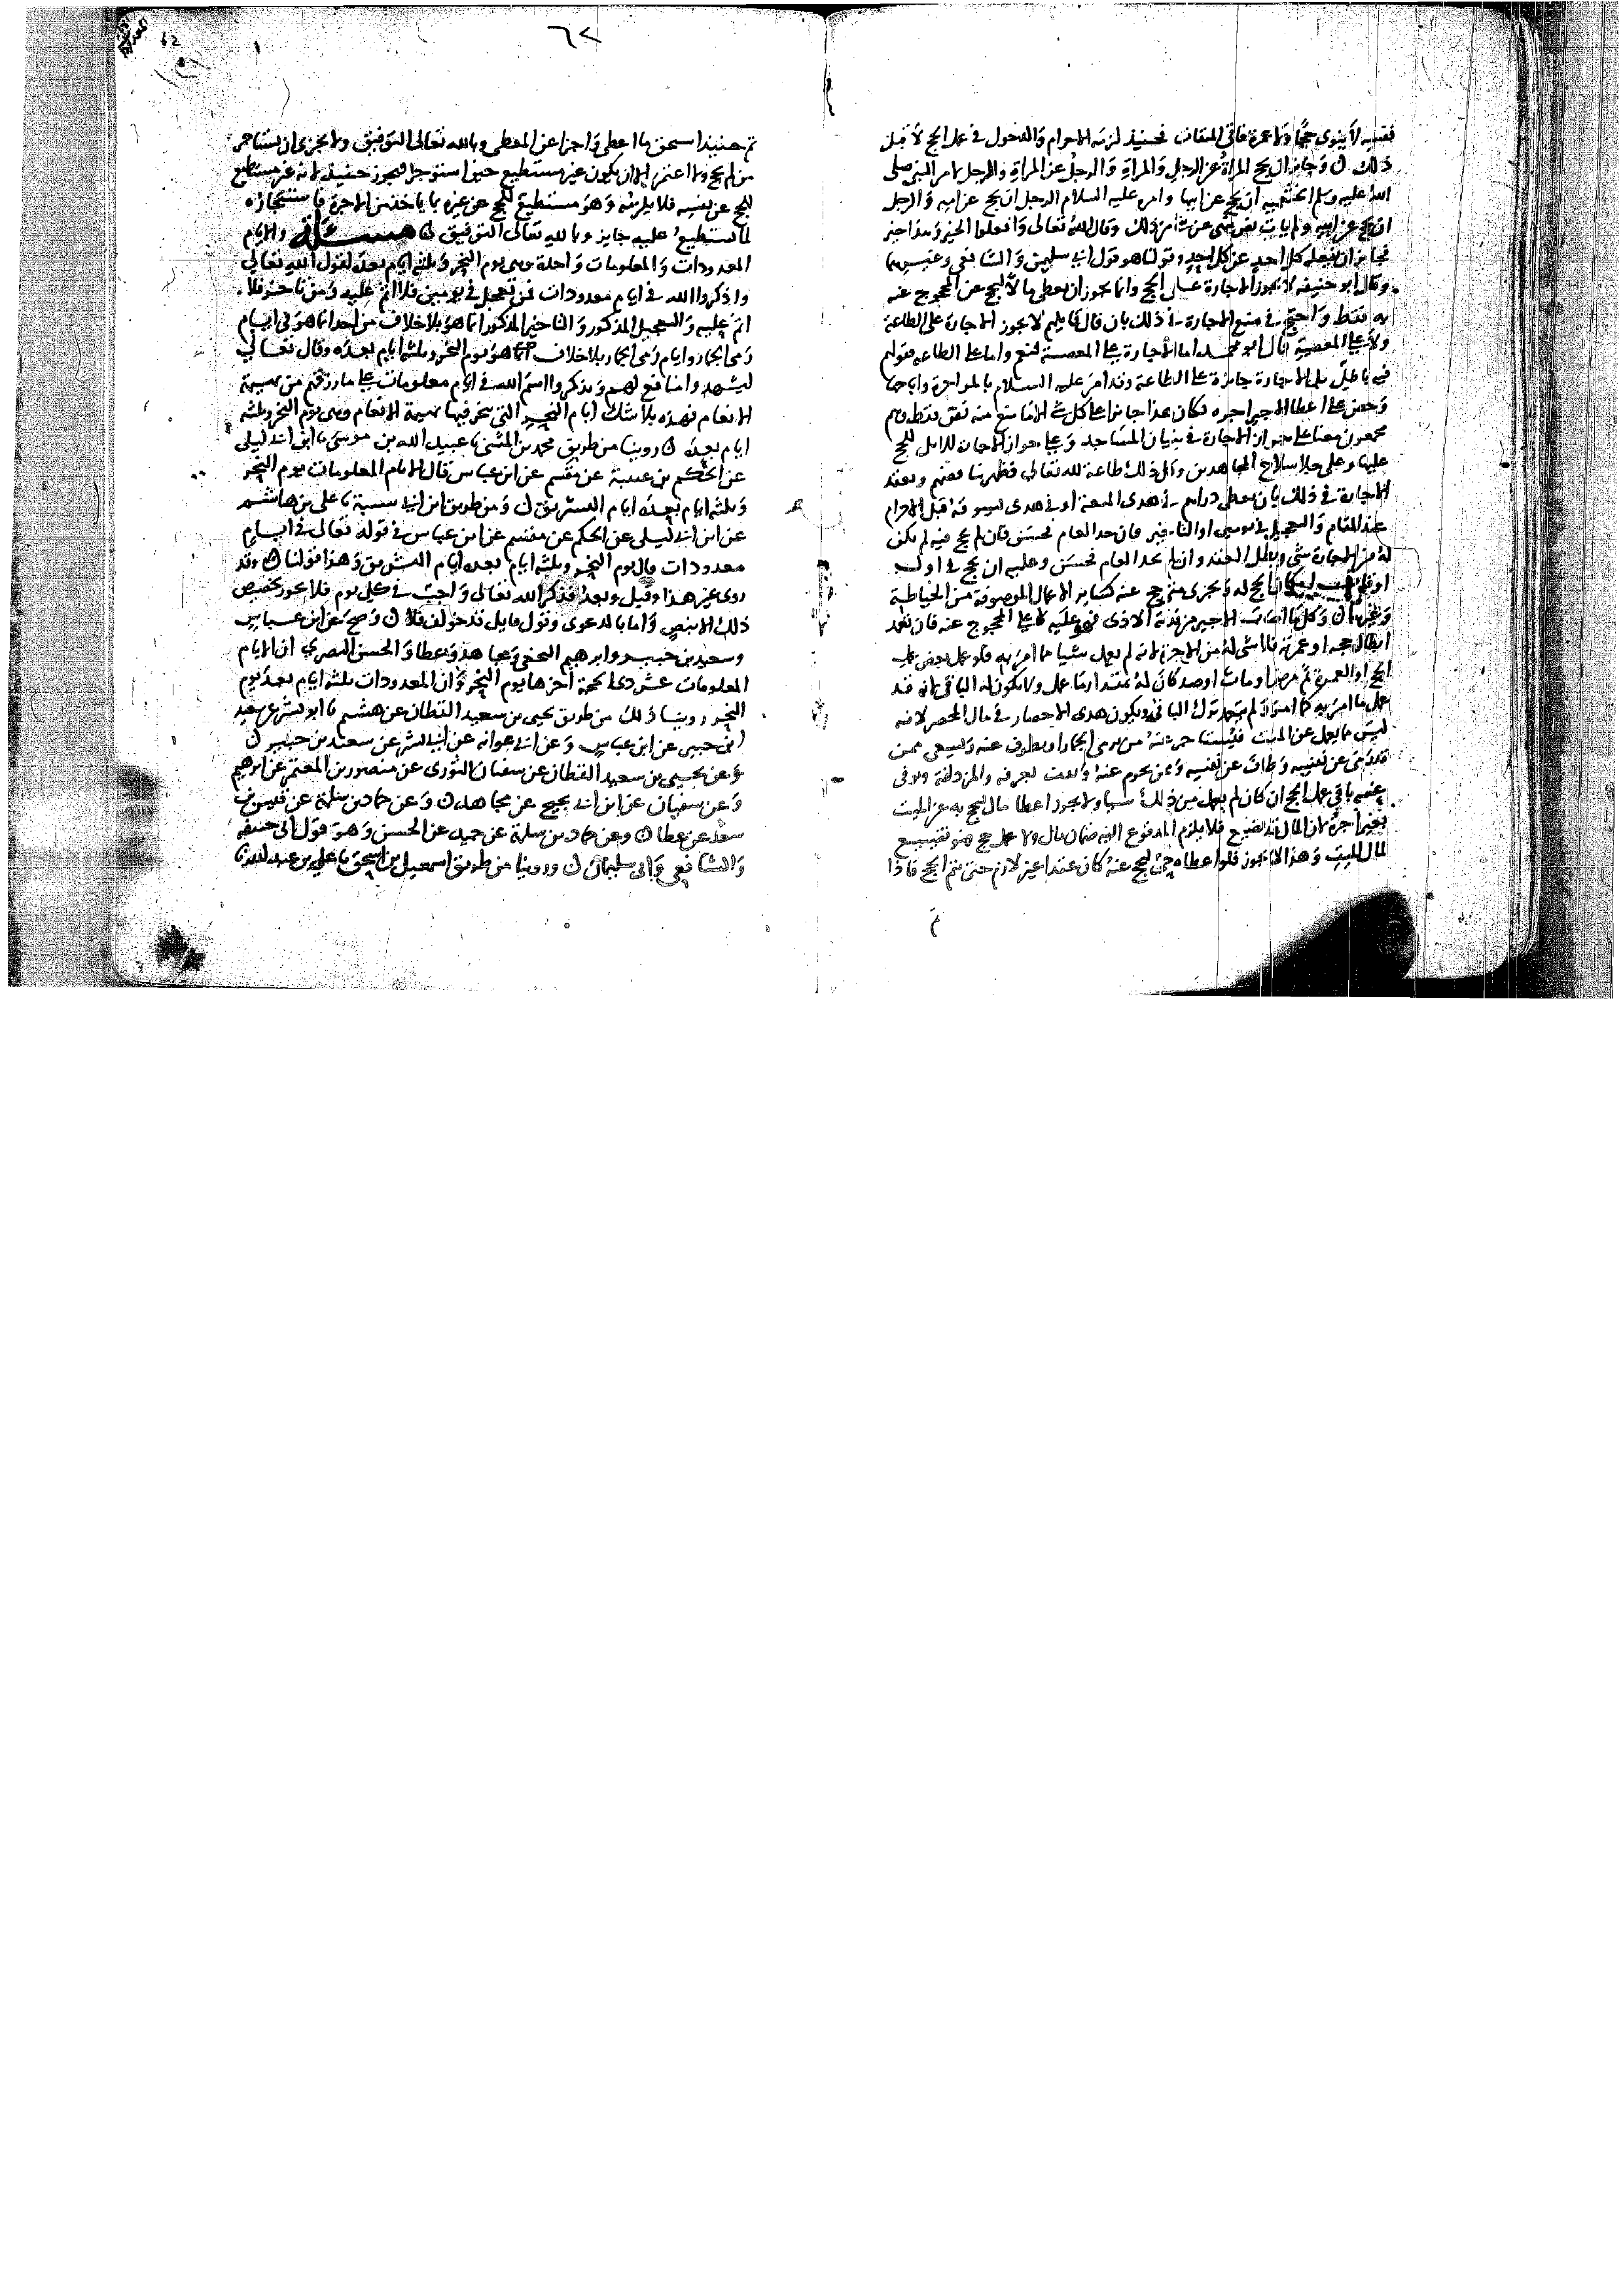 نفسه لا ينوى حجا ولا عمرة فاتى الميقات فحينئذ لزمه الاحرام والدخول في عمل الحج لا قبل
ذلك ن وجايز ان يحج المراة عن الرجل والمراة والرجل عن المراة والرجل لامر النبي صلى
الله عليه وسلم الخثعمية ان تحج عن ابيها وامر عليه السلام الرجل ان يحج عن امه والرجل
ان يحج عن ابيه ولم يات نص ينهى عن شى من ذلك وقال الله تعالى وافعلوا الخير وهذا خير
فجايز ان يفعله كل احد عن كل احد وقولنا هو قول ابي سليمن والشافعى وغيرهما
وقال ابو حنيفه لا تجوز الاجارة على الحج وانما يجوز ان يعطى مالا ليحج عن المحجوج عنه
به فقط واحتج في منع الاجارة في ذلك بان قال قايلهم لا يجوز الاجارة على الطاعة
ولا على المعصية قال ابو محمد اما الاجارة على المعصية فنعم واما على الطاعه فقولهم
فيه باطل بل الاجارة جايزة على الطاعة وقد امر عليه السلام بالمواجرة واباحها
وحض على اعطا الاجير اجره فكان هذا جايزا على كل شى الا ما منع منه نص فقط وهم
مجمعون معنا على جواز الاجارة في بنيان المساجد وعلى جواز الاجارة للابل للحج
عليها وعلى حمل سلاح المجاهدين وكل ذلك طاعة لله تعالى فظهر تناقضهم ويعقد
الاجارة في ذلك بان يعطى دراهم في هدى المتعة او في هدى يسوقه قبل الاحرام
عند المقام والتعجيل في يومين او التاخير فان حد العام فحسن فان لم يحج فيه لم يكن
له من الاجارة شى وبطل العقد وان لم يحد العام فحسن وعليه ان يحج في اول
اوقات يمكنه الحج له ويجزى متى حج عنه كساير الاعمال الموصوفة من الخياطة
وغيرها ن وكل ما اصاب الاجير من فدية الاذى فهو عليه لا على المحجوج عنه فان تعمد
ابطال حجه او عمرته فلا شى له من الاجرة لانه لم يعمل شيا مما امر به فلو عمل بعض عمل
الحج او العمرة ثم مرض او مات او صد كان له بمقدار ما عمل ولا يكون له الباقي لانه قد
عمل ما امر به كما امر اذ لم يتعمد ترك الباقي ويكون هدى الاحصار في مال المحصر لانه
ليس مما يعمل عن الميت فيستاجر عنه من يرمى الجمار او يطوف عنه ويسعى ممن
قد رمى عن نفسه وطاف عن نفسه ومن يحرم عنه ويقف بعرفه والمزدلفة ويوفى
عنه باقي عمل الحج ان كان لم يعمل من ذلك شيا ولا يجوز اعطا مال ليحج به عن الميت
بغير اجرة لان المال قد يضيع فلا يلزم المدفوع اليه ضمان مال ولا عمل حج فهو تضييع
لمال الميت وهذا لا يجوز فلو اعطاه حى ليحج عنه كان عقدا غير لازم حتى يتم الحج فاذا
٦٢
62
تم حينئذ استحق ما اعطى واجزا عن المعطى وبالله تعالى التوفيق ولا يجزى ان يستاجر
من لم يحج ولا اعتمر الا ان يكون غير مستطيع حين استؤجر فيجوز حينئذ لانه غير مستطيع
للحج عن نفسه فلا يلزمه وهو مستطيع للحج عن غيره بما ياخذ من الاجرة فاستئجاره
لما يستطيع عليه جايز وبالله تعالى التوفيق ن مسئلة والايام
المعدودات والمعلومات واحدة وهى يوم النحر وثلثه ايام بعده لقول الله تعالى
واذكروا الله في ايام معدودات فمن تعجل في يومين فلا اثم عليه ومن تاخر فلا
اثم عليه والتعجيل المذكور والتاخير المذكور انما هو بلا خلاف من احد انما هو في ايام
رمى الجمار وايام رمى الجمار بلا خلاف انما هو يوم النحر وثلثه ايام بعده وقال تعالى
ليشهدوا منافع لهم ويذكروا اسم الله في ايام معلومات على ما رزقهم من بهيمة
الانعام فهذه بلا شك ايام النحر التى ينحر فيها بهيمة الانعام وهى يوم النحر وثلثه
ايام بعده ن روينا من طريق محمد بن المثنى نا عبيد الله بن موسى نا ابن ابى ليلى
عن الحكم بن عتيبة عن مقسم عن ابن عباس قال الايام المعلومات يوم النحر
وثلثه ايام بعده ايام التشريق ن ومن طريق ابن ابي شيبة نا على بن هاشم
عن ابن ابى ليلى عن الحكم عن مقسم عن ابن عباس في قوله تعالى في ايام
معدودات قال يوم النحر وثلثه ايام بعده ايام التشريق وهذا قولنا ن وقد
روى غير هذا وقيل وبعد فذكر الله تعالى واجب في كل يوم فلا يجوز تخصيص
ذلك الا بنص واما بالدعوى وقول قايل قد خولف فلا ن وصح عن ابن عباس
وسعيد بن جبير وابرهيم النخعى ومجاهد وعطا والحسن البصري ان الايام
المعلومات عشر ذى الحجة اخرها يوم النحر وان المعدودات ثلثه ايام بعد يوم
النحر روينا ذلك من طريق يحيى بن سعيد القطان عن هشيم نا ابو بشر عن سعيد
ابن جبير عن ابن عباس وعن ابى عوانه عن ابى بشر عن سعيد بن جبير ن
وعن يحيى بن سعيد القطان عن سفيان الثورى عن منصور بن المعتمر عن ابرهيم
وعن سفيان عن ابن ابى نجيح عن مجاهد ن وعن حماد بن سلمة عن قيس بن
سعد عن عطا ن وعن حماد بن سلمة عن حميد عن الحسن وهو قول ابى حنيفه
والشافعى وابى سليمان ن وروينا من طريق اسمعيل بن اسحق نا على بن عبد الله نا